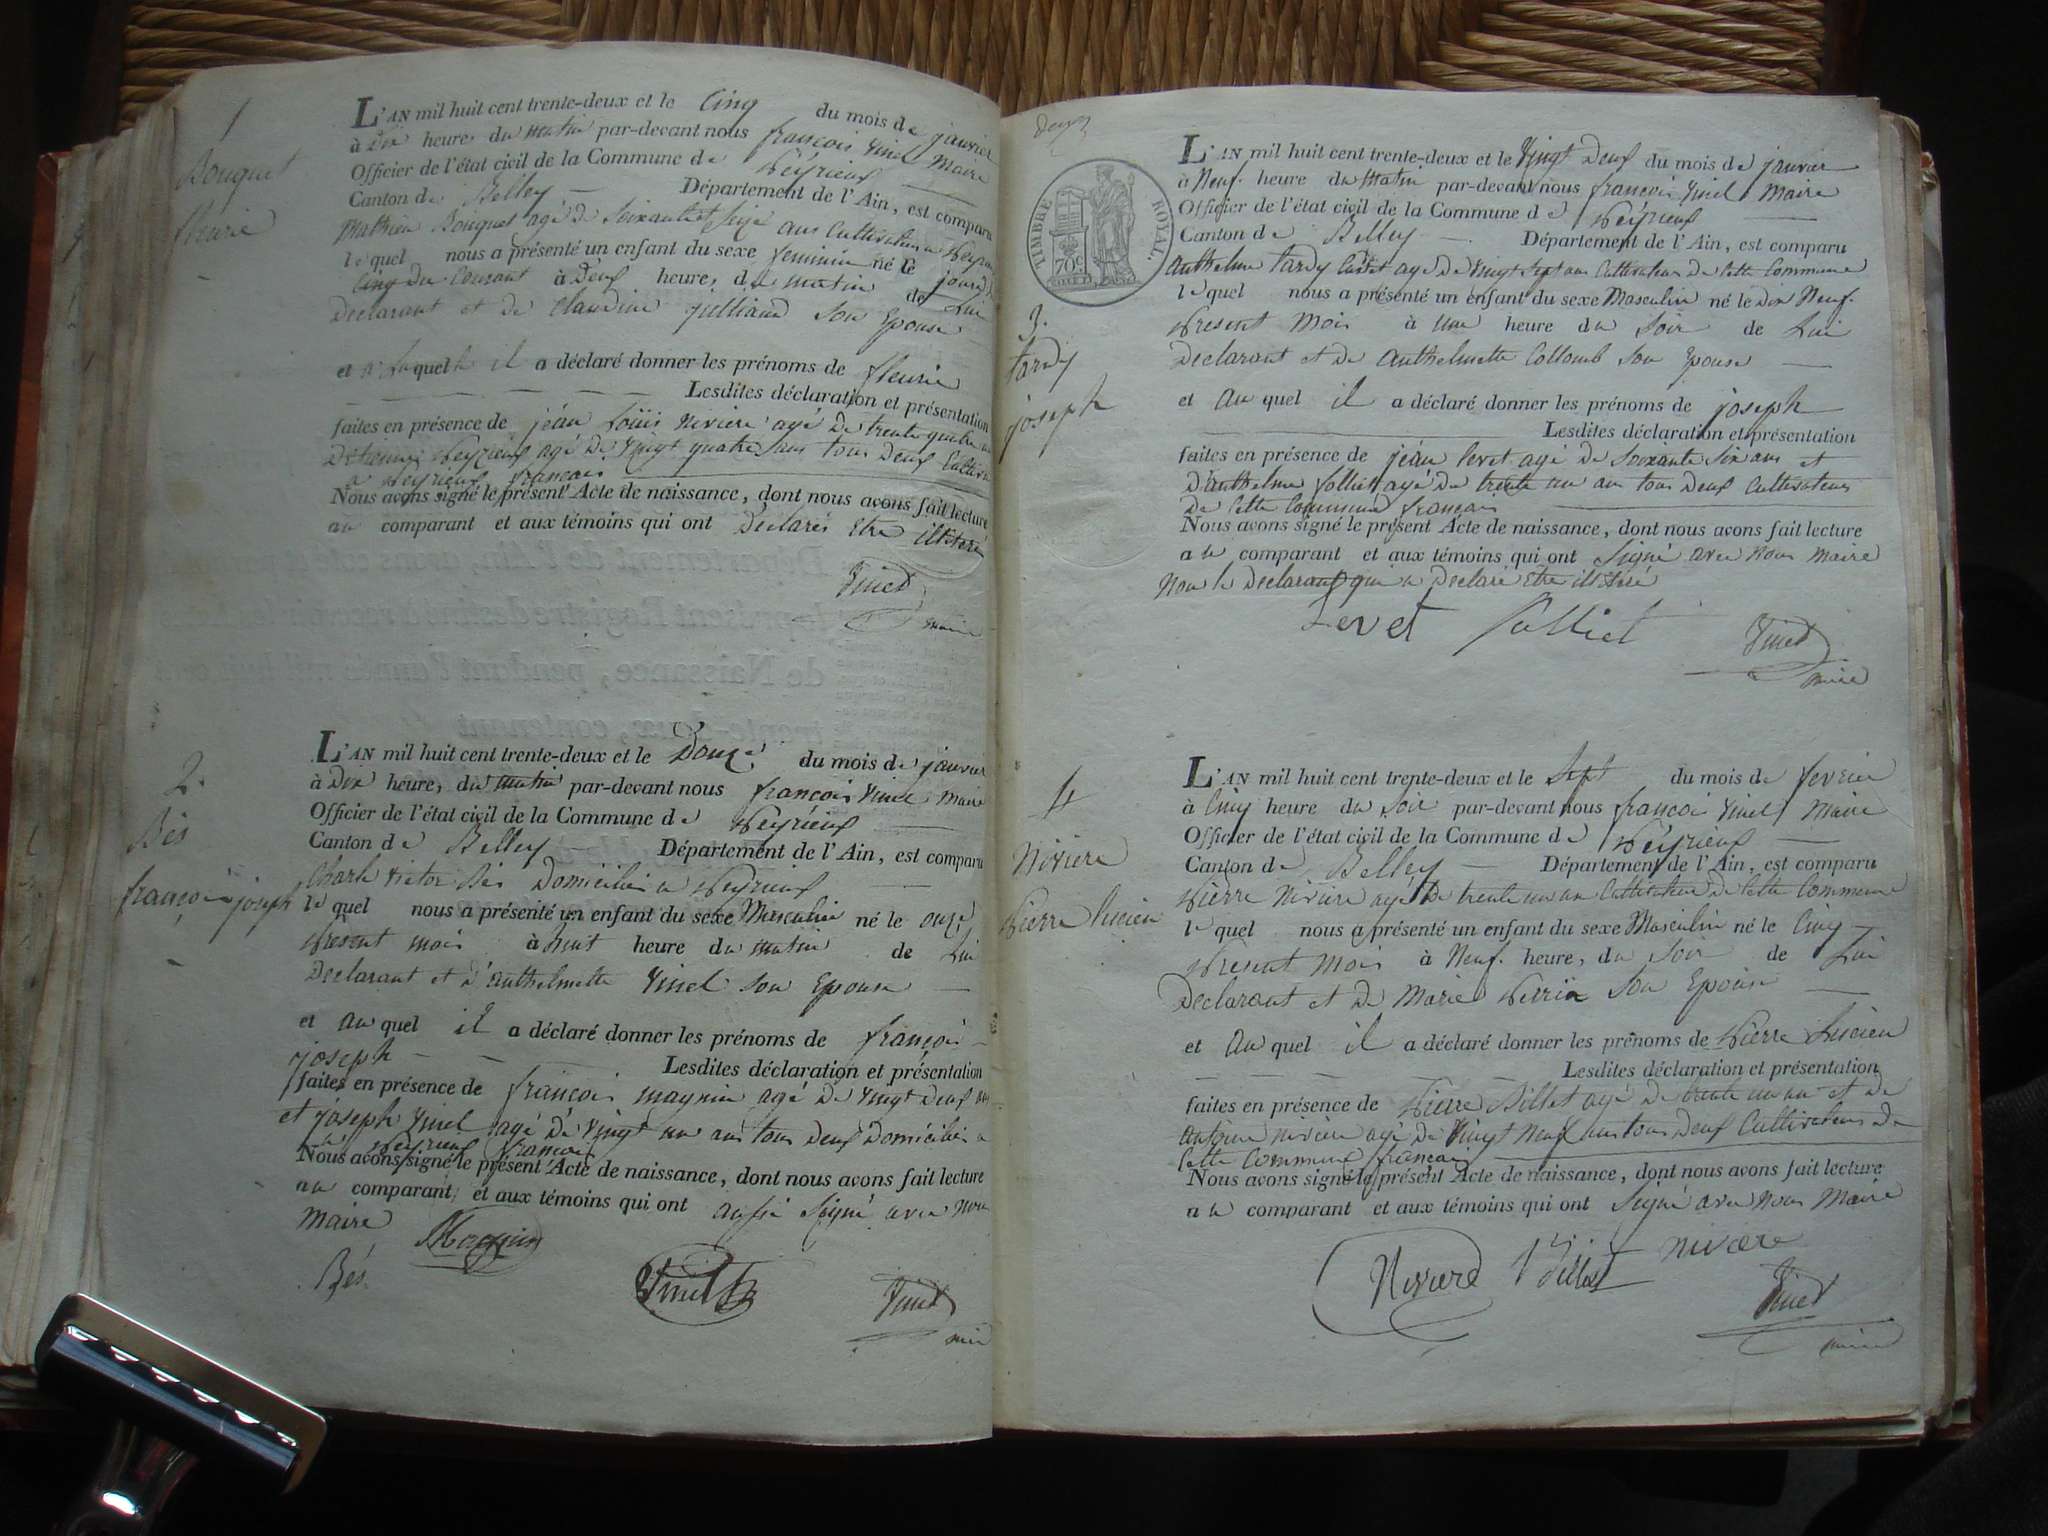 1
Bouquet
fleurie
L'AN mil huit cent trente-deux et le Cinq du mois de janvier
à Dix heures du matin par-devant nous françois Vinel Maire
Officier de l'état civil de la Commune de Peÿrieux
Canton de Belley — Département de l'Ain, est comparu
Mathieu Bouquet agé de Soixante et Seize ans Cultivateur a Peyrieux
lequel nous a présenté un enfant du sexe feminin né le
Cinq du Courant à Deux heures du matin de Lui
Declarant et de Claudine Julliand son Epouse
et à laquelle il a déclaré donner les prénoms de fleurie
Lesdites déclaration et présentation
faites en présence de jéan Louis Niviere agé de trente quatre ans
Peyrieux agé de Vingt quatre ans tous Deux
a Peÿrieux français
Nous avons signé le présent Acte de naissance, dont nous avons fait lecture
au comparant et aux témoins qui ont Déclarés Etre illitérés
Vinel
maire
2.
Bés
françois joseph
L'AN mil huit cent trente-deux et le Douze du mois de janvier
à Dix heures du matin par-devant nous françois Vinel Maire
Officier de l'état civil de la Commune de Peÿrieux
Canton de Belley — Département de l'Ain, est comparu
Charle Victor Bés Domicilié a Peyrieux
lequel nous a présenté un enfant du sexe Masculin né le onze
Present mois à huit heure du matin de Lui
Declarant et d'anthelmette Vinel son Epouse
et au quel il a déclaré donner les prénoms de françois
joseph — Lesdites déclaration et présentation
faites en présence de françois magnin agé de Vingt Deux ans
et joseph Vinel agé de Vingt un ans tous Deux Domiciliés a
Peyrieux français
Nous avons signé le présent Acte de naissance, dont nous avons fait lecture
au comparant et aux témoins qui ont aussi Signé avec nous
Maire
Magnin
Bés
Vinel
Vinel
maire
Deux
TIMBRE ROYAL.
70c
3.
tardy
joseph
L'AN mil huit cent trente-deux et le Vingt Deux du mois de janvier
à Neuf heure du Matin par-devant nous françois Vinel Maire
Officier de l'état civil de la Commune de Peÿrieux
Canton de Belley — Département de l'Ain, est comparu
Anthelme tardy Cadet agé de Vingt Sept ans Cultivateur de Cette Commune
lequel nous a présenté un enfant du sexe Masculin né le Dix Neuf
Present Mois à Une heure du Soir de Lui
Declarant et de Anthelmette Collomb Son Epouse —
et Au quel il a déclaré donner les prénoms de joseph
Lesdites déclaration et présentation
faites en présence de jéan levet agé de Soixante Six ans et
D'anthelme folliet agé de trente un ans tous Deux Cultivateurs
De Cette Commune français
Nous avons signé le présent Acte de naissance, dont nous avons fait lecture
au comparant et aux témoins qui ont Signé avec nous Maire
Non le Declarant qui a Declaré Etre illitéré
Levet folliet
Vinel
maire
4
Niviere
Pierre Lucien
L'AN mil huit cent trente-deux et le Sept du mois de fevrier
à Cinq heure du Soir par-devant nous françois Vinel Maire
Officier de l'état civil de la Commune de Peÿrieux
Canton de Belley — Département de l'Ain, est comparu
Pierre Niviere agé De trente un an Cultivateur De Cette Commune
lequel nous a présenté un enfant du sexe Masculin né le Cinq
Present Mois à Neuf heures du Soir de Lui
Declarant et De Marie Perrin Son Epouse
et Au quel il a déclaré donner les prénoms de Pierre Lucien
Lesdites déclaration et présentation
faites en présence de Pierre Billet agé De trente un an et de
Antoine niviere agé De Vingt Neuf ans tous Deux Cultivateurs De
Cette Commune français
Nous avons signé le présent Acte de naissance, dont nous avons fait lecture
au comparant et aux témoins qui ont Signé avec nous Maire
Niviere Billet niviere
Vinel
maire